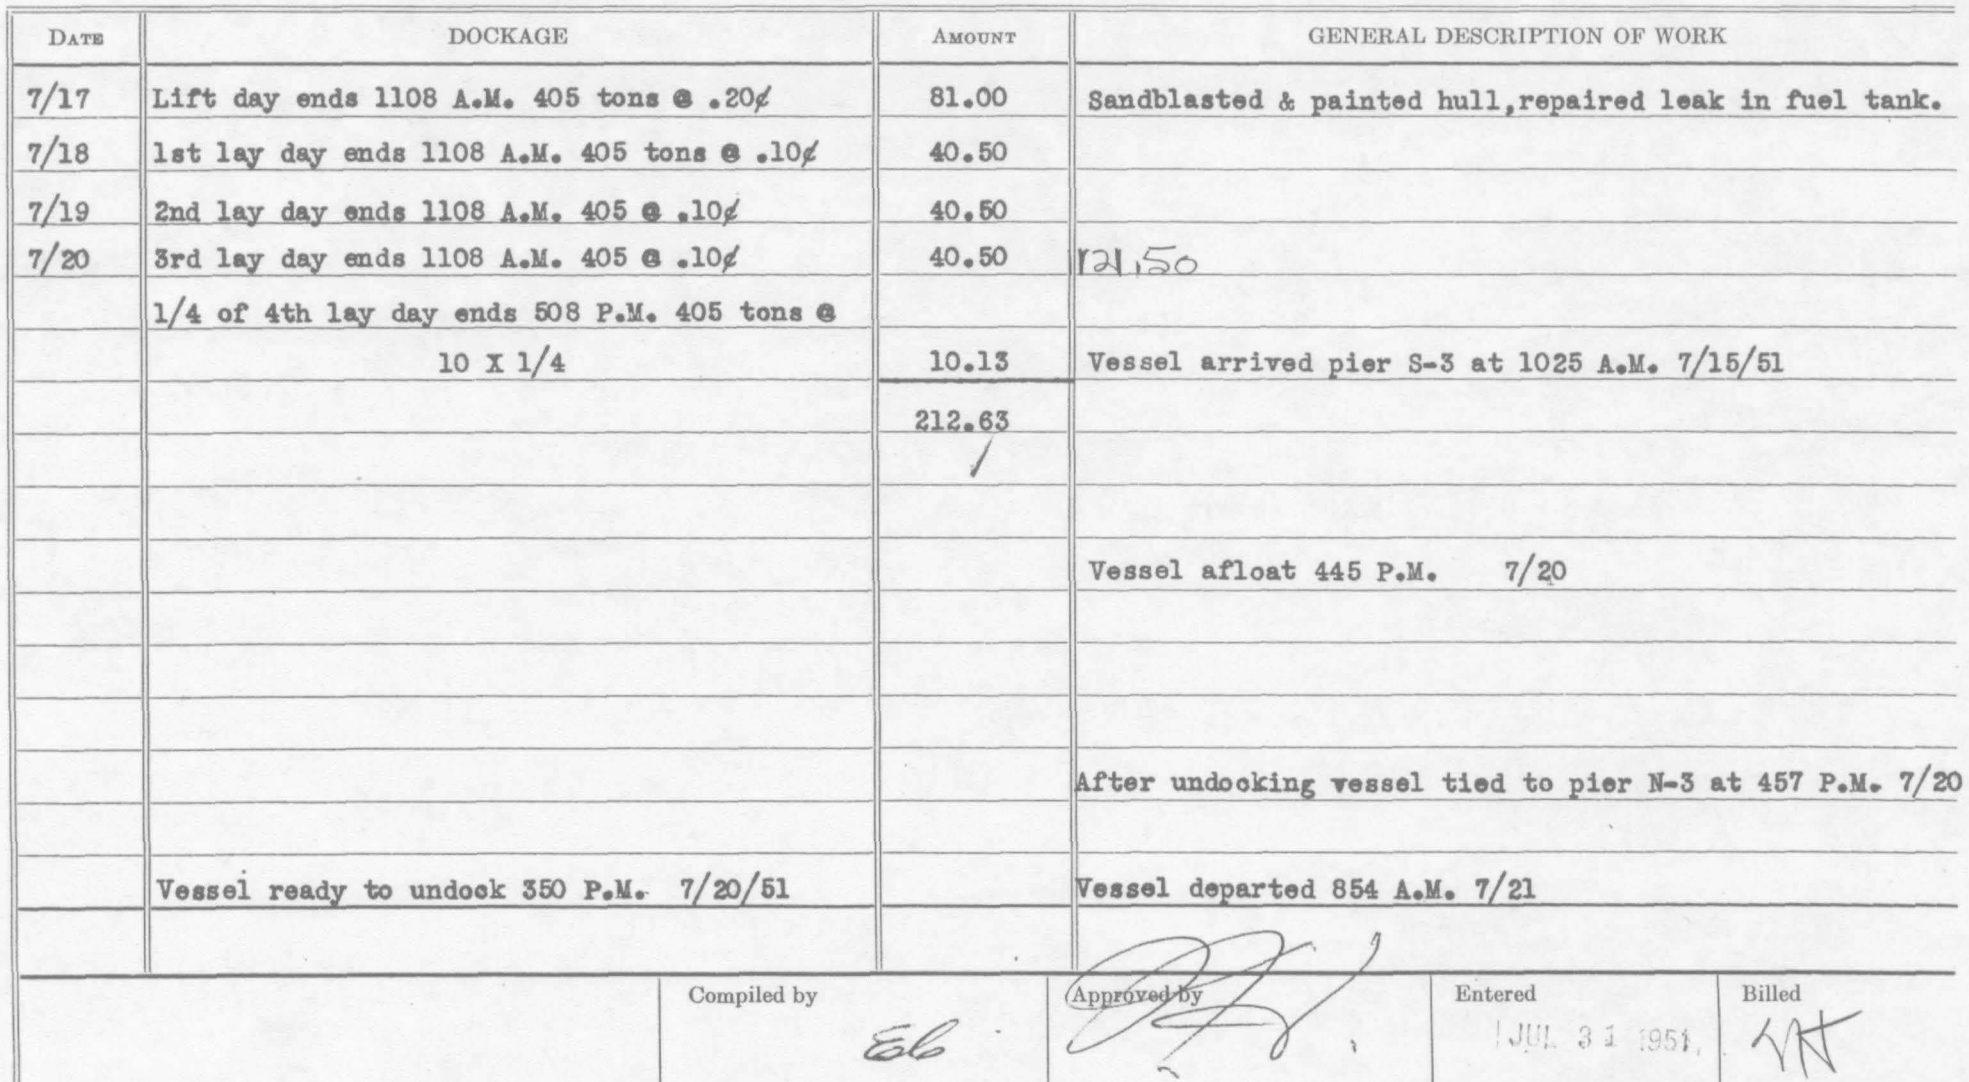 DATE DOCKAGE AMOUNT GENERAL DESCRIPTION OF WORK
7/17 Lift day ends 1108 A.M. 405 tons @ .20¢ 81.00 Sandblasted & painted hull,repaired leak in fuel tank.
7/18 1st lay day ends 1108 A.M. 405 tons @ .10¢ 40.50
7/19 2nd lay day ends 1108 A.M. 405 @ .10¢ 40.50
7/20 3rd lay day ends 1108 A.M. 405 @ .10¢ 40.50 121.50
1/4 of 4th lay day ends 508 P.M. 405 tons @
10 X 1/4 10.13 Vessel arrived pier S-3 at 1025 A.M. 7/15/51
212.63
Vessel afloat 445 P.M. 7/20
After undocking vessel tied to pier N-3 at 457 P.M. 7/20
Vessel ready to undock 350 P.M. 7/20/51 Vessel departed 854 A.M. 7/21
Compiled by Approved by Entered Billed
JUL 31 1951